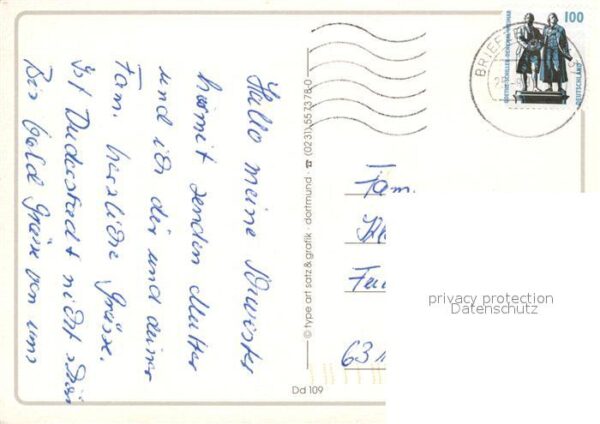 Hallo meine Schwister
hiermit senden Mutter
und ich dir und deiner
Fam. herzliche Grüsse.
Ist Duderstadt nicht schön
Bis bald Grüsse von uns
© type art satz & grafik · dortmund · ☎ (0231) 55 73 78-0
Dd 109
BRIEF
100
GOETHE-SCHILLER-DENKMAL WEIMAR
DEUTSCHLAND
Fam.
63
privacy protection
Datenschutz